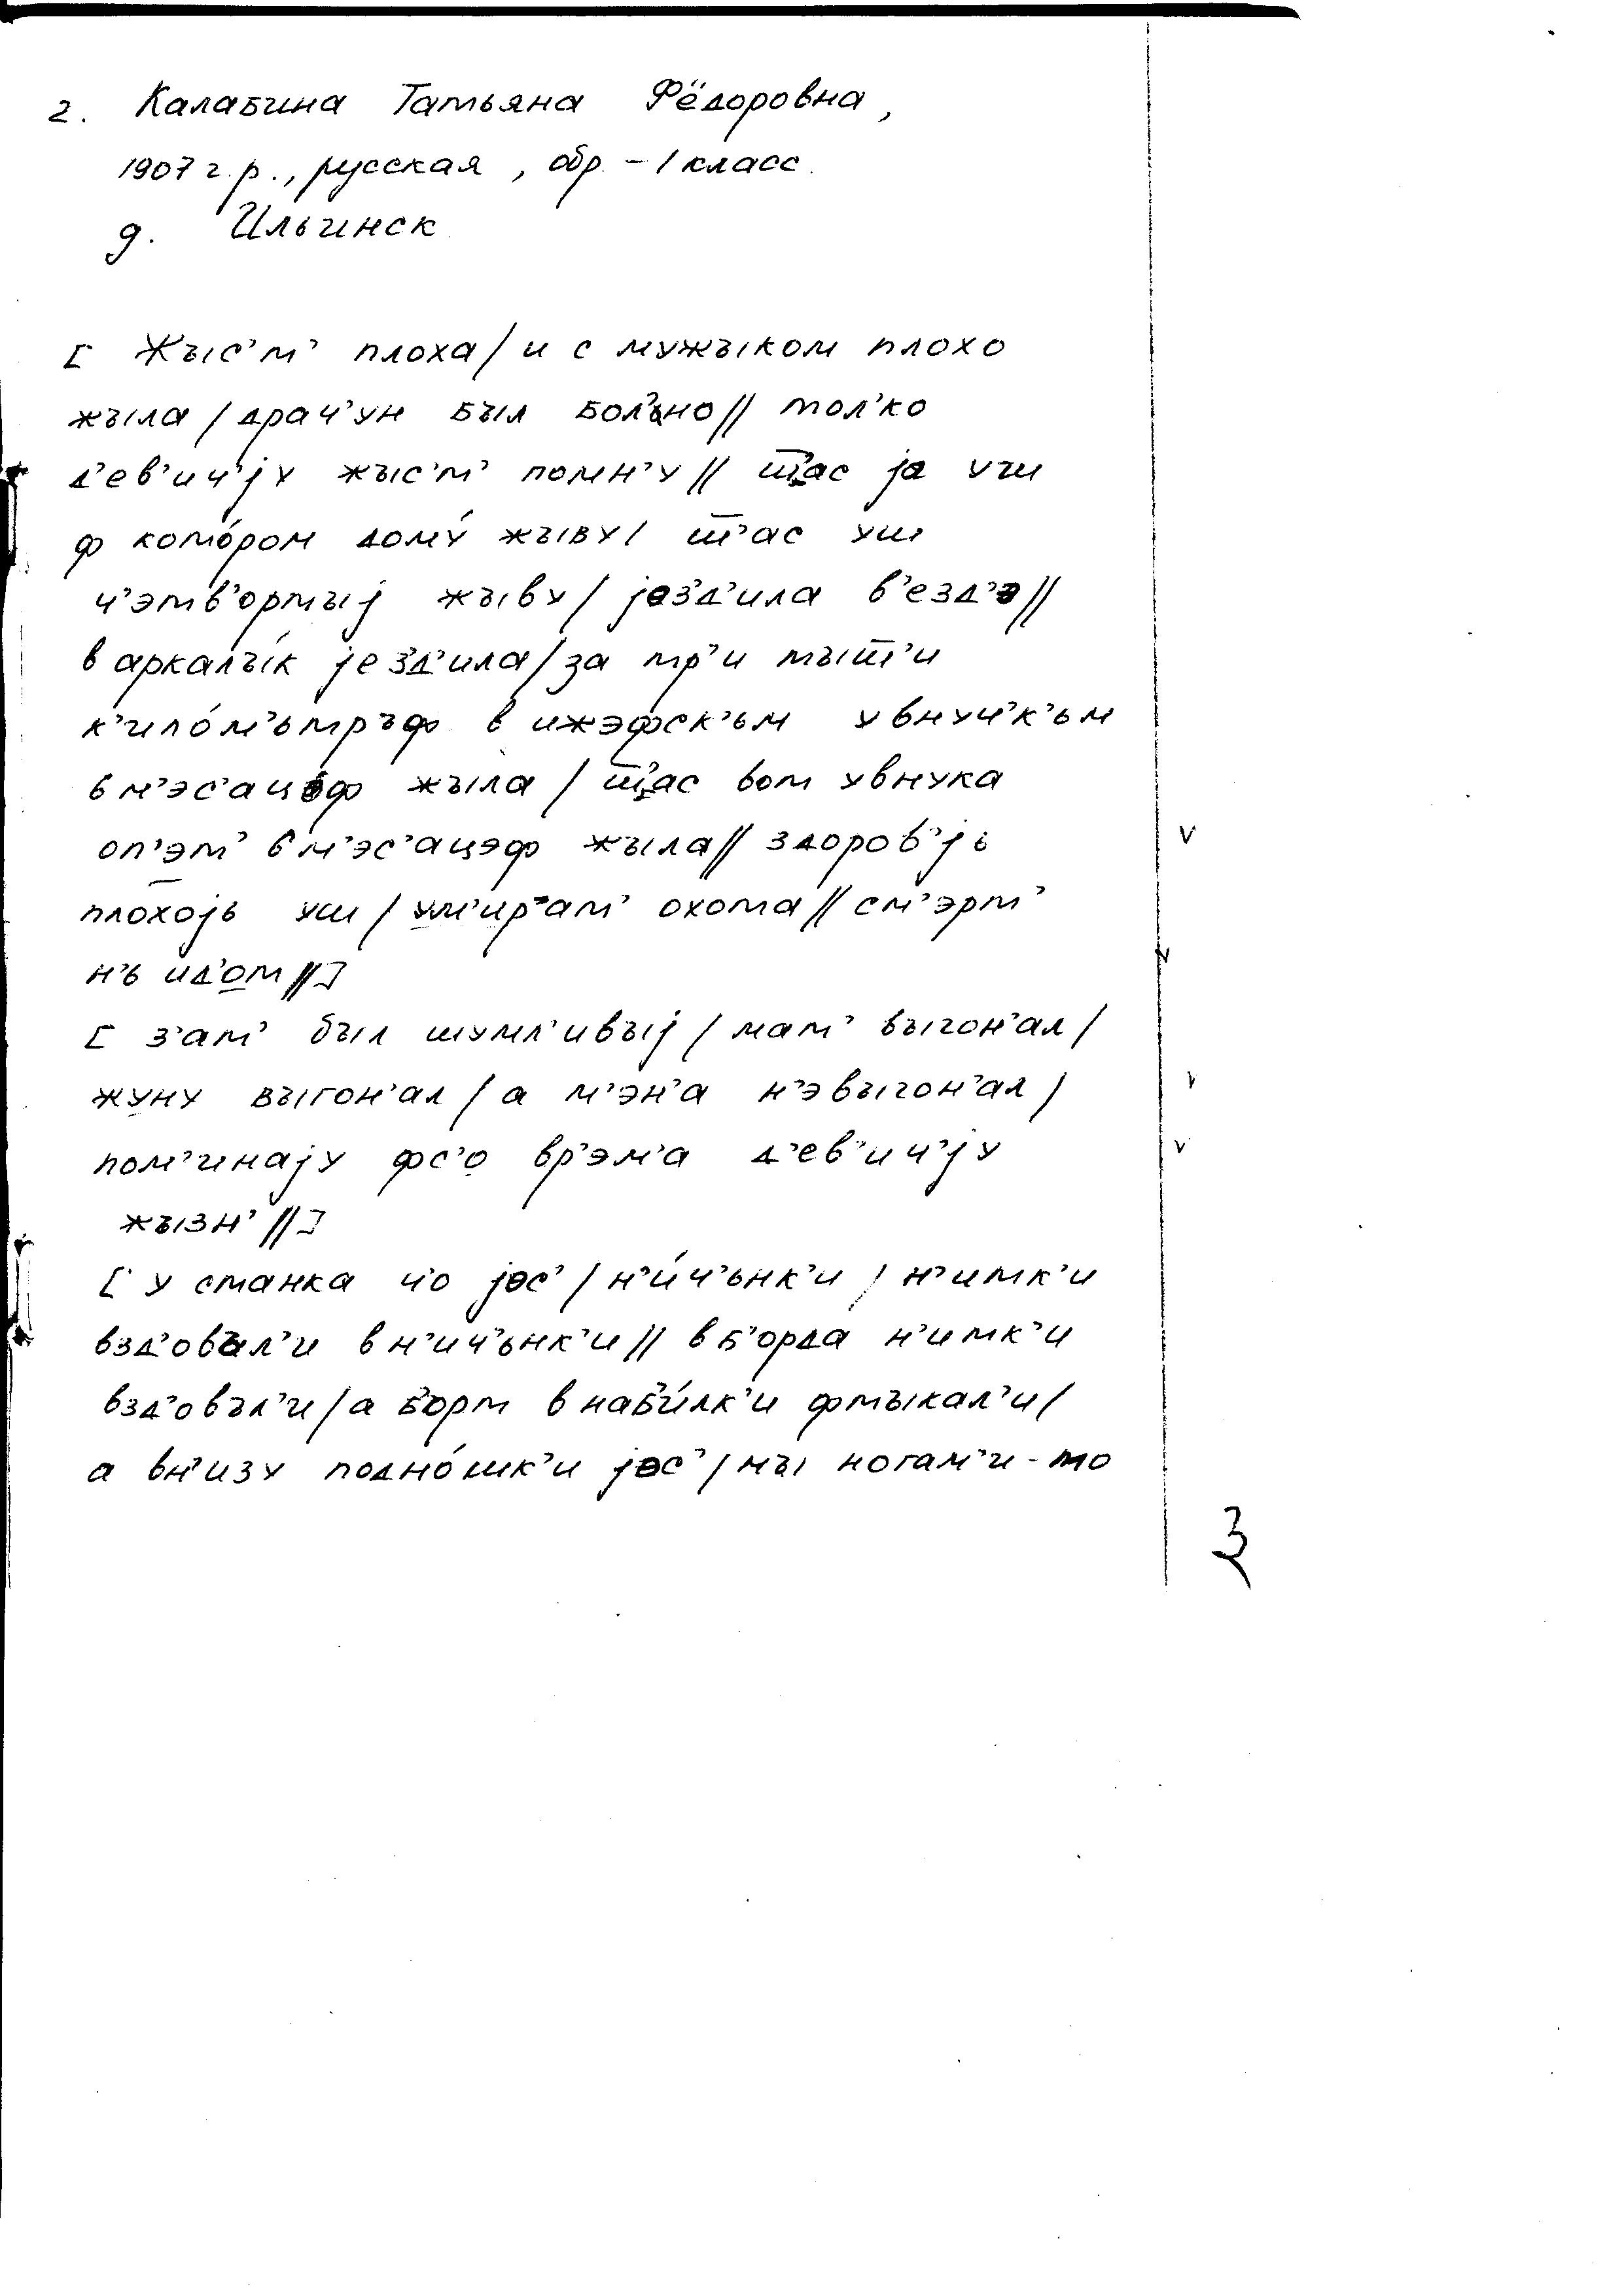 2. Калабина Татьяна Фёдоровна,
1907 г.р., русская, обр. – 1 класс.
д. Ильинск
[ Жыс'т' плоха / и с мужыком плохо
жыла / драч'ун был бол'но // тол'ко
д'ев'ич'jу жыс'т' помн'у // ш̅'ас jа уш
ф кото́ром дому́ жыву / ш̅'ас уш
ч'этв'ортыj жыву / jезд'ила в'езд'э //
в аркалы́к jезд'ила / за тр'и тыш̅'и
к'ило́м'ьтръф в ижэфск'ьм у внуч'к'ьм
6 м'эс'ацэф жыла / ш̅'ас вот у внука
оп'эт' 6 м'эс'ацэф жыла // здоров'jь
плохоjь уш / ум'ират' охота // см'эрт'
н'ь ид'от // ]
[ з'ат' был шумл'ивыj / мат' выгон'ал /
жуну выгон'ал / а м'эн'а н'э выгон'ал /
пом'инаjу фс'о вр'эм'а д'ев'ич'jу
жызн' // ]
[ у станка ч'о jес' / н'и́ч'ьнк'и / н'итк'и
взд'овал'и в н'ич'ьнк'и // в б'орда н'итк'и
взд'овъл'и / а б'орт в наб'и́лк'и фтыкал'и /
а вн'изу подно́шк'и jес' / мы ногам'и-то
3